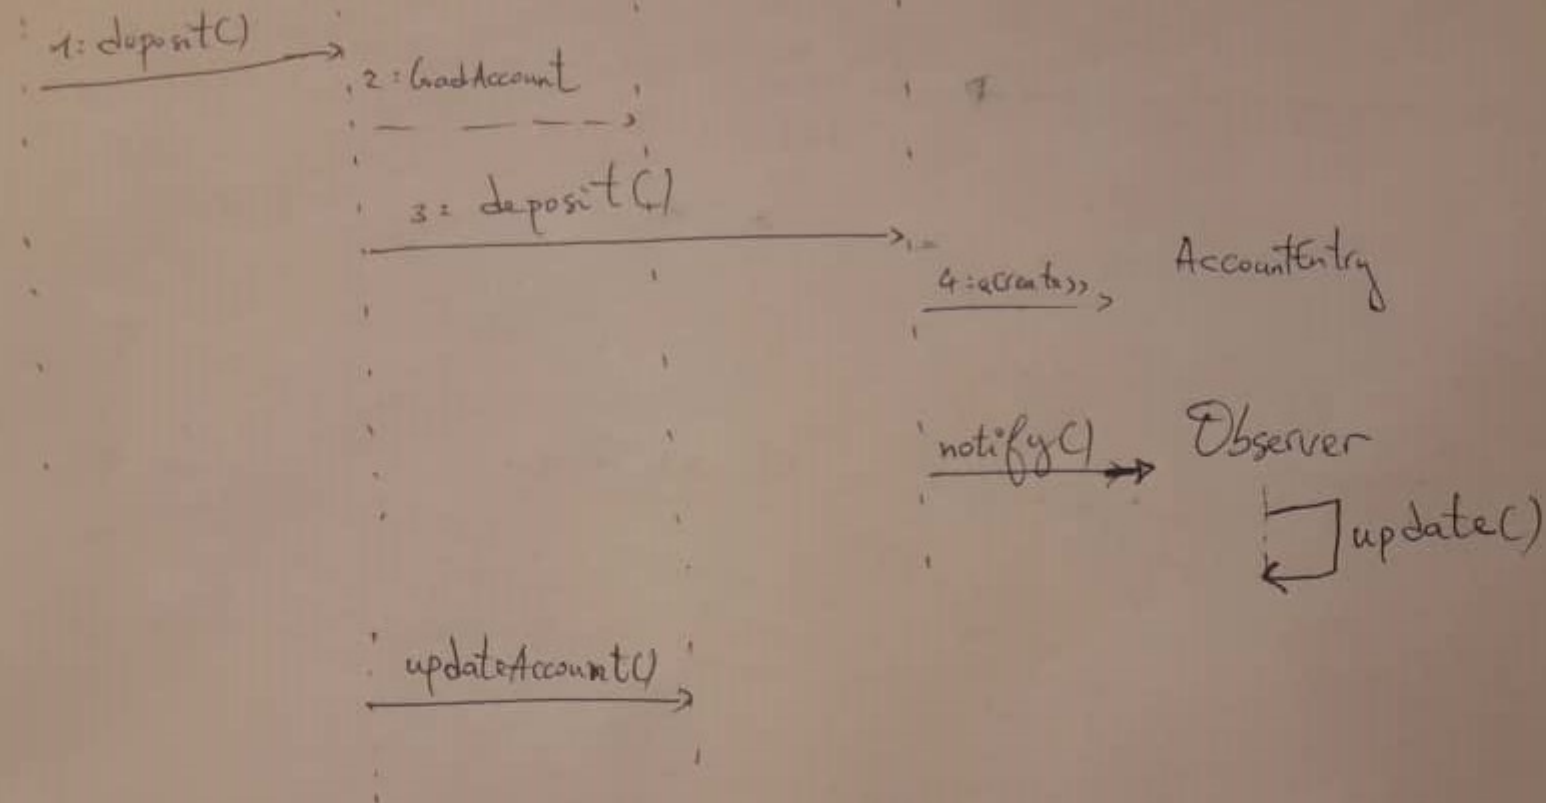 1: deposit()
2: loadAccount
3: deposit()
4: «create»
AccountEntry
notify()
Observer
update()
updateAccount()